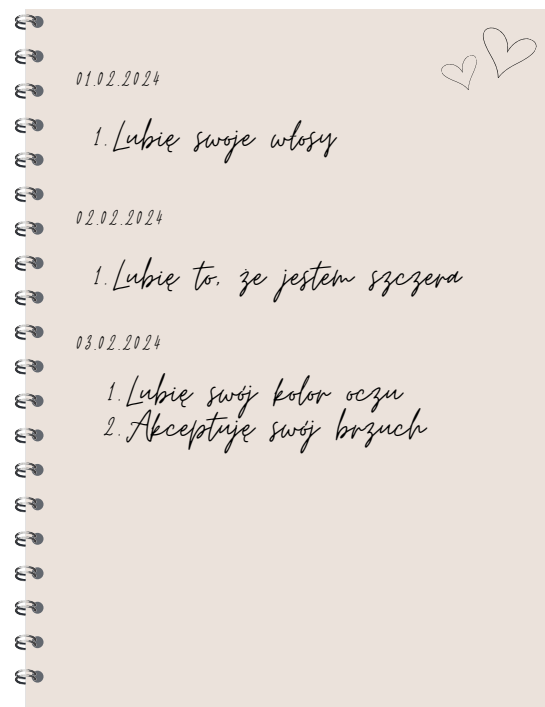 01.02.2024
1. Lubię swoje włosy
02.02.2024
1. Lubię to, że jestem szczera
03.02.2024
1. Lubię swój kolor oczu
2. Akceptuję swój brzuch